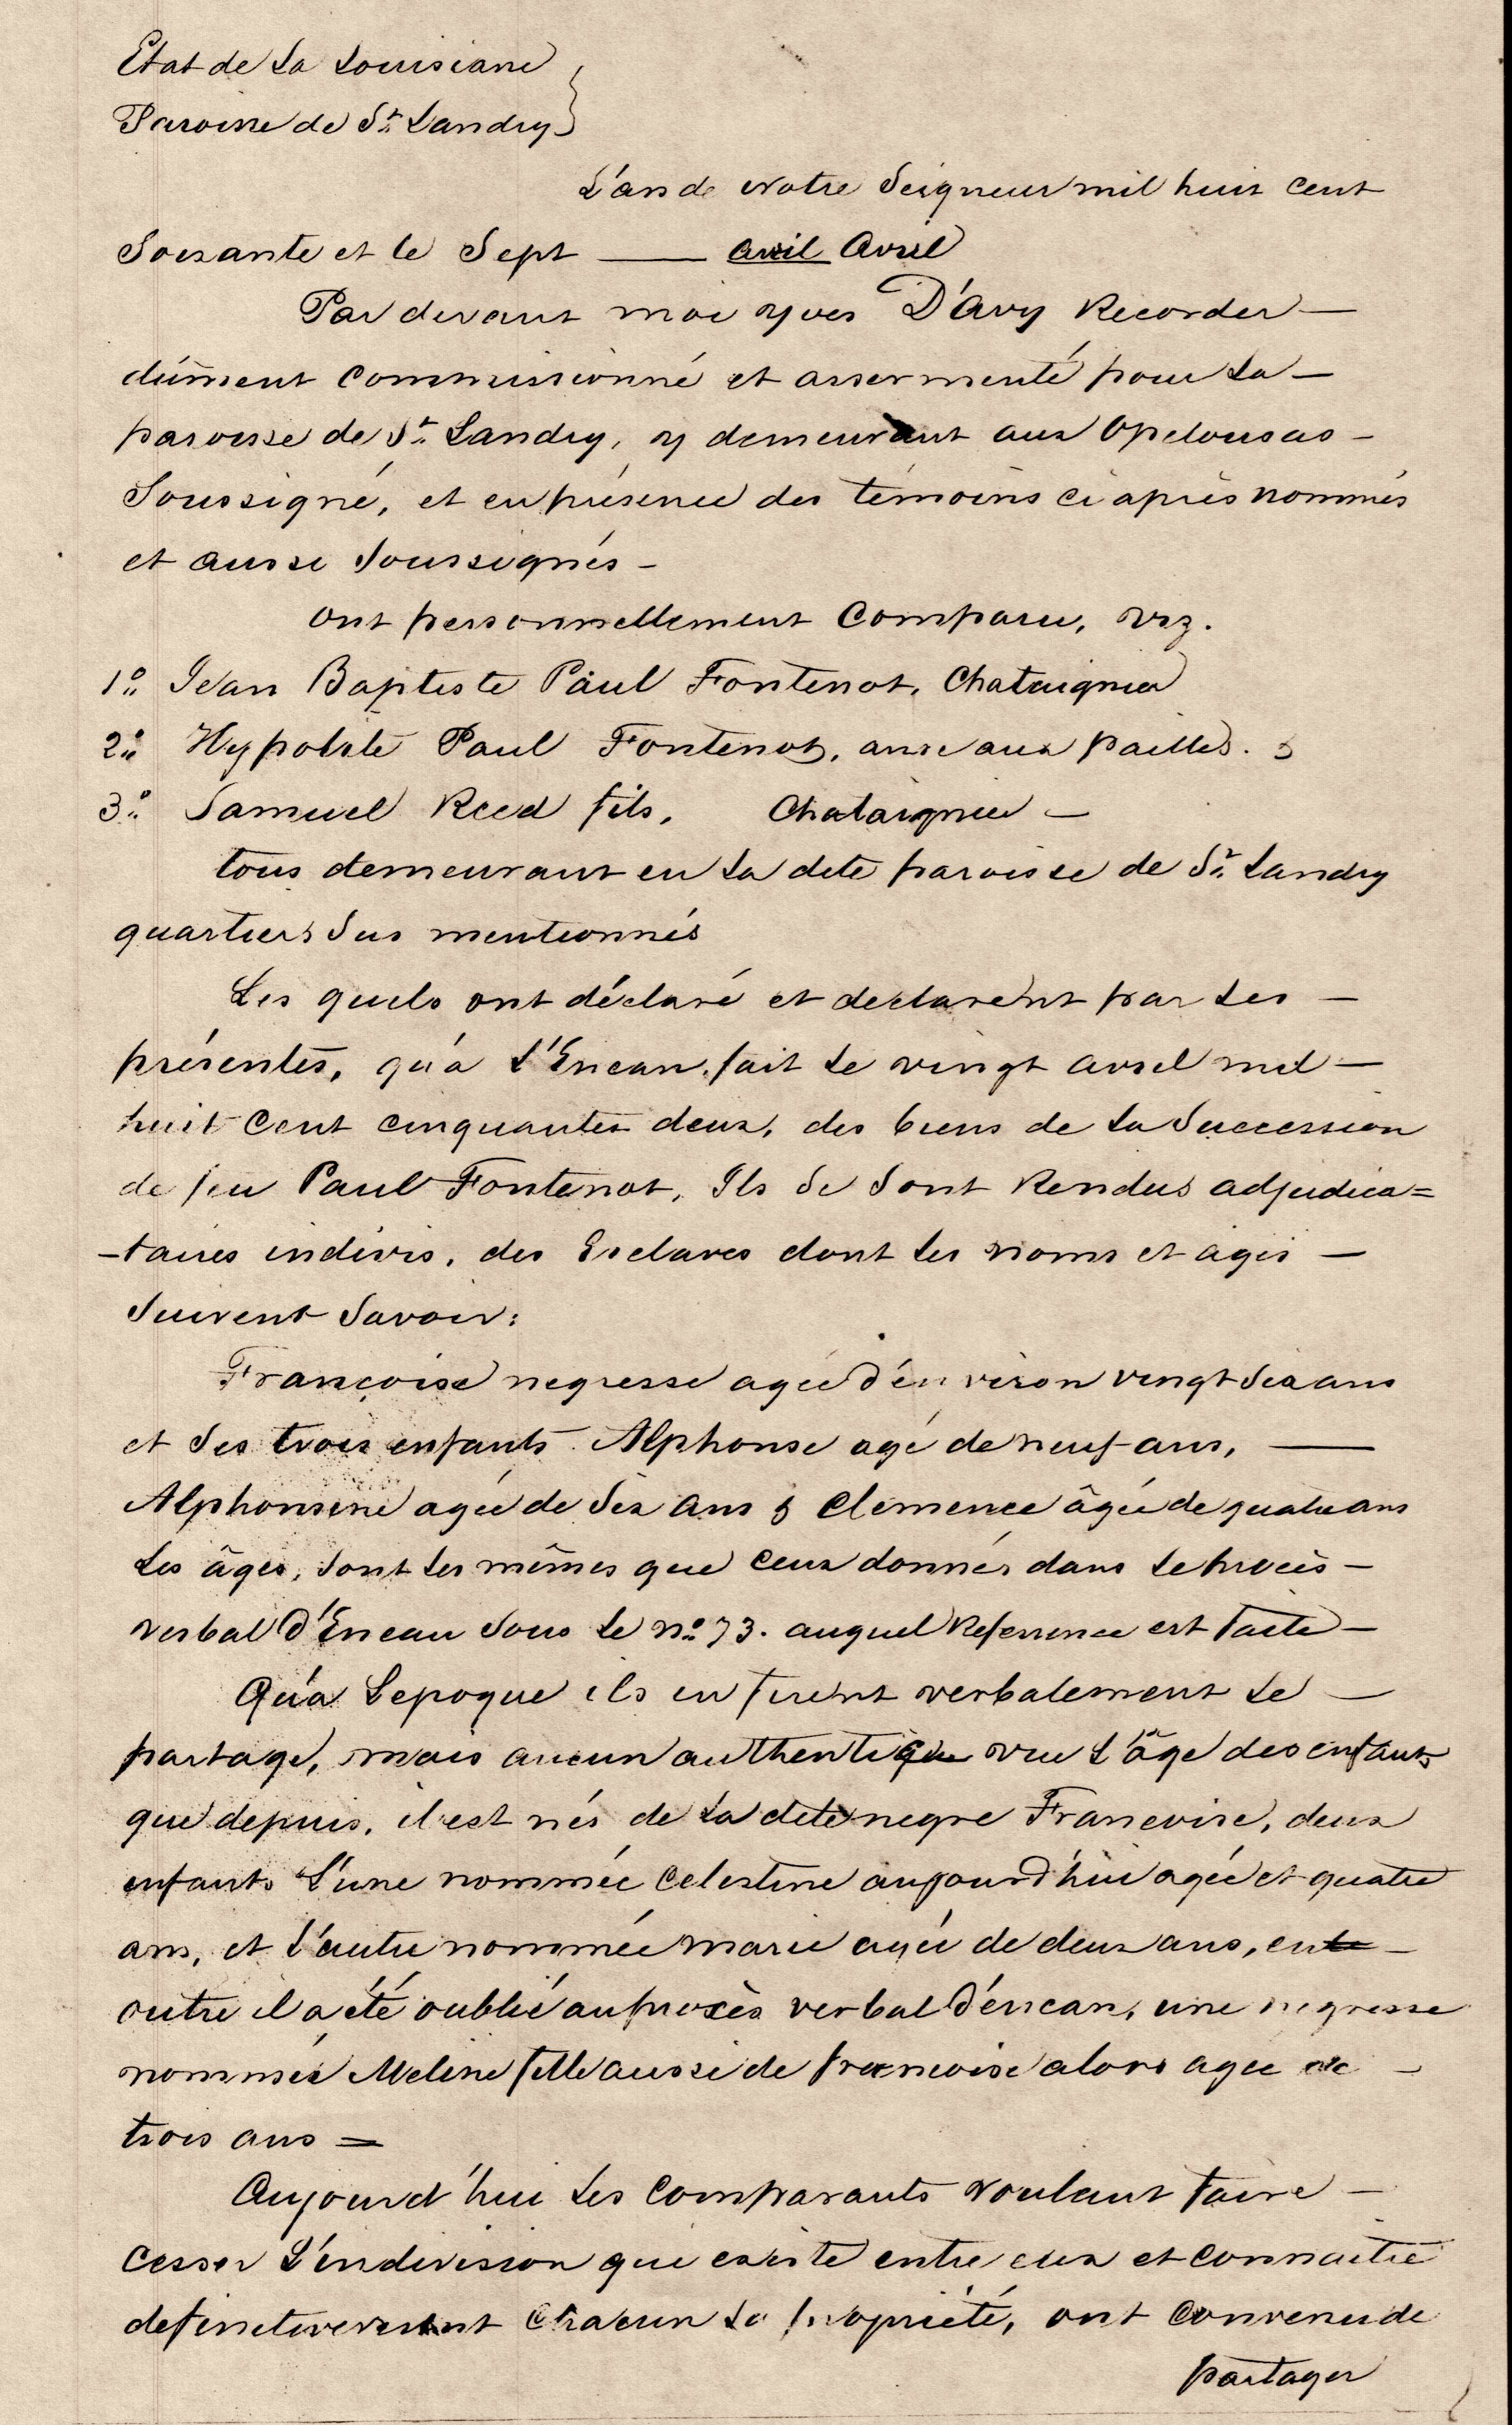 Etat de La Louisiane
Paroisse de St. Landry
L'an de Notre Seigneur mil huit cent
Soixante et le Sept —— avril Avril
Par devant moi Yves D'Avy Recorder —
dûment Commissionné et assermenté pour La —
paroisse de St. Landry, y demeurant aux Opelousas —
Soussigné, et en présence des témoins ci après nommés
et aussi Soussignés —
Ont personnellement Comparu, viz.
1º Jean Baptiste Paul Fontenot, Chataignier
2º Hypolite Paul Fontenot, anse aux pailles. &
3º Samuel Reed fils, Chataignier —
tous demeurant en La dite paroisse de St. Landry
quartiers Sus mentionnés
Les quels ont déclaré et declarent par Les —
présentes, qu'a L'Encan, fait Le vingt avril mil —
huit Cent cinquante deux, des biens de La Succession
de feu Paul Fontenot, Ils Se Sont Rendus adjudica=
-taires indivis, des Esclaves dont Les noms et ages —
Suivent Savoir:
Françoise negresse agée d'environ vingt Six ans
et Ses trois enfants Alphonse agé de neuf ans, ——
Alphonsine agée de Six ans & Clemence âgée de quatre ans
Les âges, Sont Les mêmes que Ceux donnés dans Le procès —
verbal d'Encan Sous Le nº 73. auquel Reference est faite —
Qu'a Lepoque ils en firent verbalement Le —
partage, mais aucun authentique vu L'âge des enfants
que depuis, il est nés de La dite negre Francoise, deux
enfants L'une nommée Celestine aujourd'hui agée et quatre
ans, et L'autre nommée Marie agée de deux ans, ente —
outre il a été oublié au procès verbal d'éncan, une negresse
nommée Meline fille aussi de francoise alors agee de —
trois ans =
Aujourd'hui Les Comparants voulant faire —
Cesser L'indivision qui existe entre eux et Connaitre
definitivement Chacun Sa propriété, ont Convenu de
partager